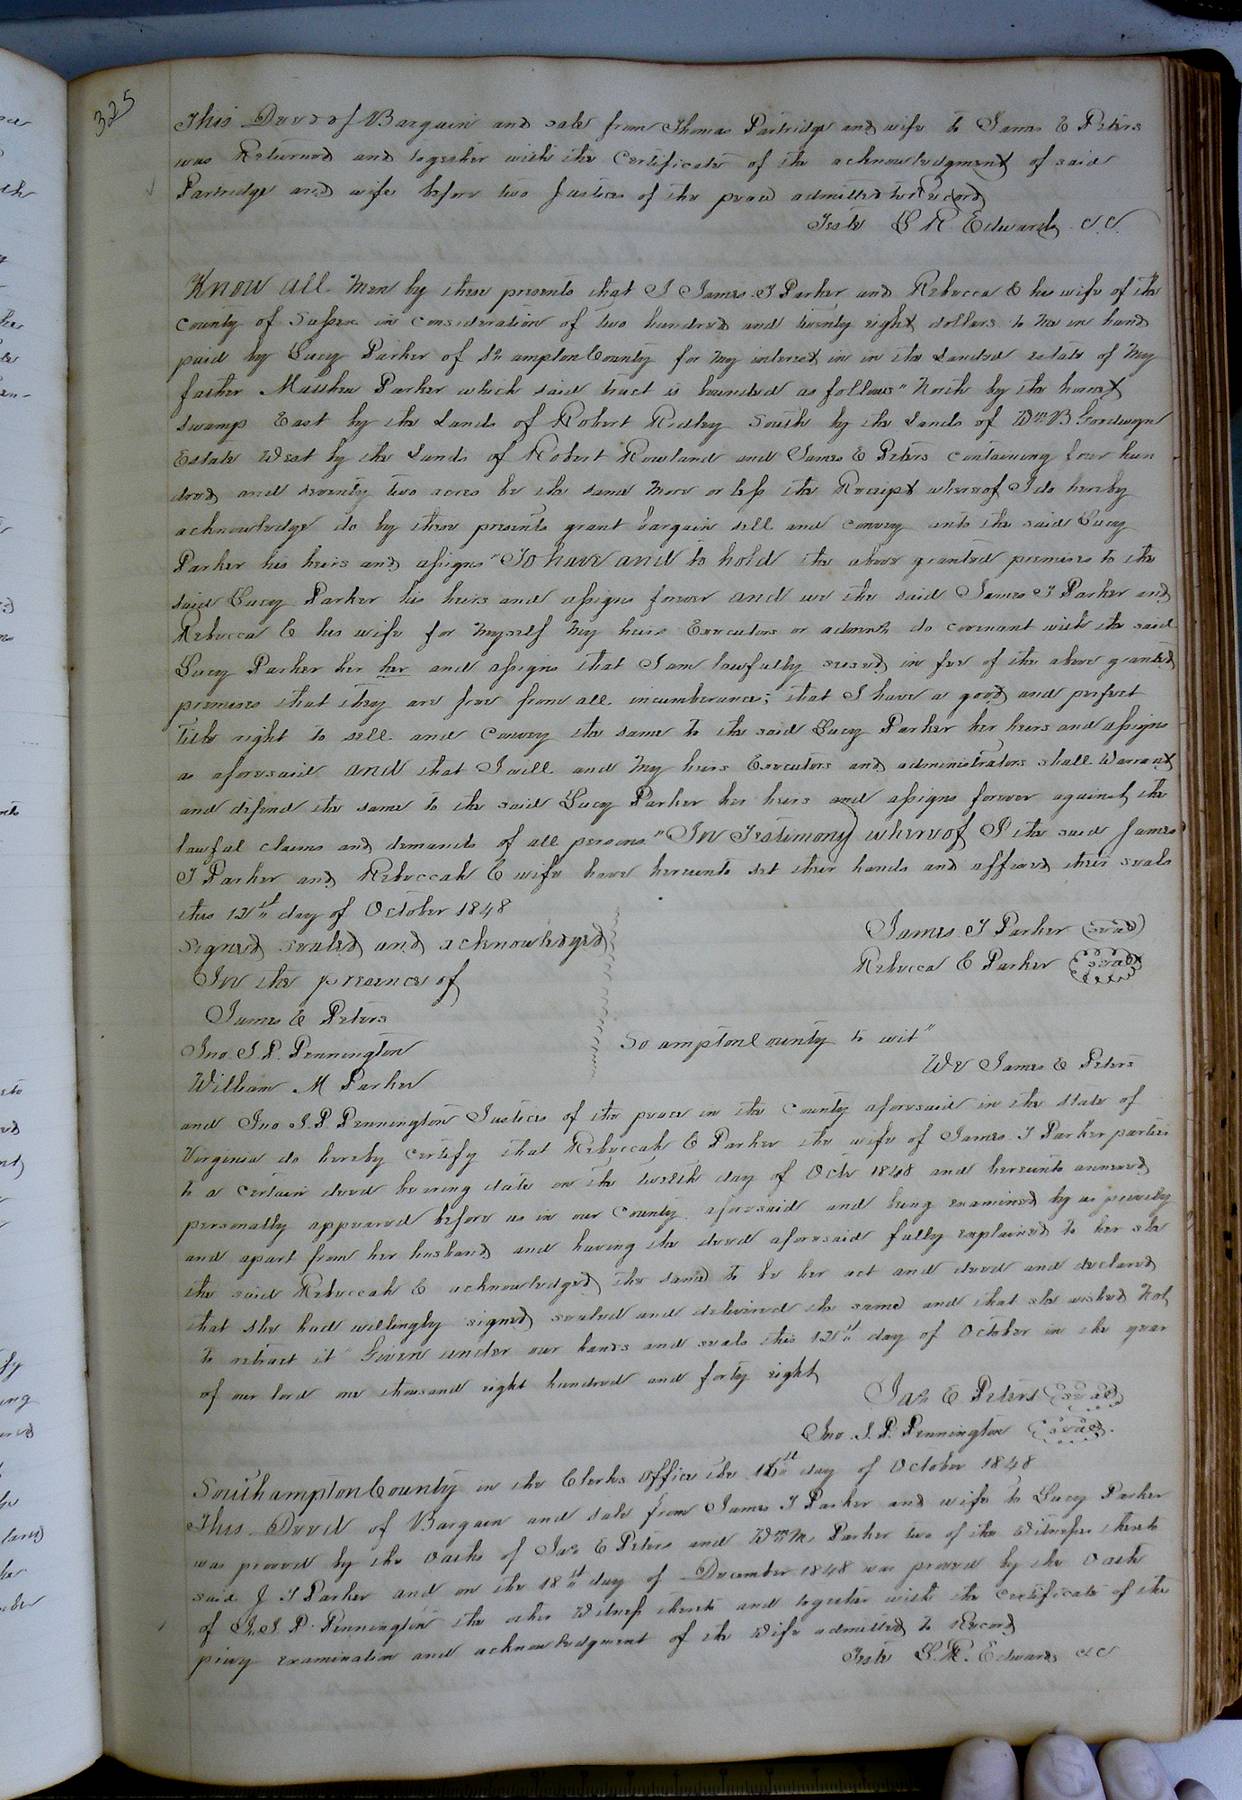 325
This Deed of Bargain and sale from Thomas Partridge and wife to James E Peters
was Returned and together with the Certificate of the acknowledgment of said
Partridge and wife before two Justices of the peace admitted to Record
Teste L R Edwards C.C.
Know all Men by these presents that I James T Parker and Rebecca E his wife of the
County of Sussex in consideration of two hundred and twenty eight dollars to me in hand
paid by Lucy Parker of Sh ampton County for my interest in in the Landed estate of my
father Matthew Parker which said tract is bounded as follows" North by the
swamp East by the Lands of Robert Ridley South by the Lands of Wm B Goodwyn
Estate West by the Lands of Robert Rowland and James E Peters containing four hun
dred and seventy two acres be the same more or less the Receipt whereof I do hereby
acknowledge do by these presents grant bargain sell and convey unto the said Lucy
Parker his heirs and assigns "To have and to hold the above granted premises to the
said Lucy Parker his heirs and assigns forever and we the said James T Parker and
Rebecca E his wife for myself my heirs Executors or admrs do covenant with the said
Lucy Parker her her and assigns that I am lawfully seized in fee of the above granted
premises that they are free from all incumberance; that I have a good and perfect
title right to sell and convey the same to the said Lucy Parker her heirs and assigns
as aforesaid and that I will and my heirs Executors and administrators shall Warrant
and defend the same to the said Lucy Parker her heirs and assigns forever against the
lawful claims and demands of all persons" In Testimony whereof I the said James
T Parker and Rebeccah E wife have hereunto set their hands and affixed their seals
this 12th day of October 1848
signed sealed and acknowledged
In the presence of
James T Parker (seal)
Rebecca E Parker (seal)
James E Peters
Jno. S. P. Pennington
William M Parker
So ampton County to wit"
We James E Peters
and Jno S. P Pennington Justices of the peace in the County aforesaid in the State of
Virginia do hereby certify that Rebeccah E Parker the wife of James T Parker parties
to a certain deed bearing date on the twelth day of Octr 1848 and hereunto annexed
personally appeared before us in our County aforesaid and being examined by us privily
and apart from her husband and having the deed aforesaid fully explained to her she
the said Rebeccah E acknowledged the same to be her act and deed and declared
that she had willingly signed sealed and delivered the same and that she wished Not
to retract it" Given under our hands and seals this 12th day of October in the year
of our lord one thousand eight hundred and forty eight
Jas E Peters (seal)
Jno. S. P. Pennington (seal)
Southampton County in the Clerks office the day of October 1848
This Deed of Bargain and sale from James T Parker and wife to Lucy Parker
was proved by the oaths of Jas E Peters and Wm M. Parker two of the Witness thereto
said J T Parker and on the 18th day of December 1848 was proved by the Oath
of Jn S P. Pennington the other Witness thereto and together with the certificate of the
privy examination and acknowledgment of the Wife admitted to Record
Teste L. R. Edwards CC